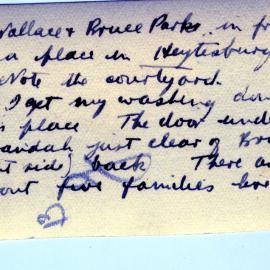 Wallace & Bruce Parks in fr
a place in Heytesbury
Note the courtyard.
I get my washing don
is place The door unde
andah just clear of Br
t side) back There a
out five families live